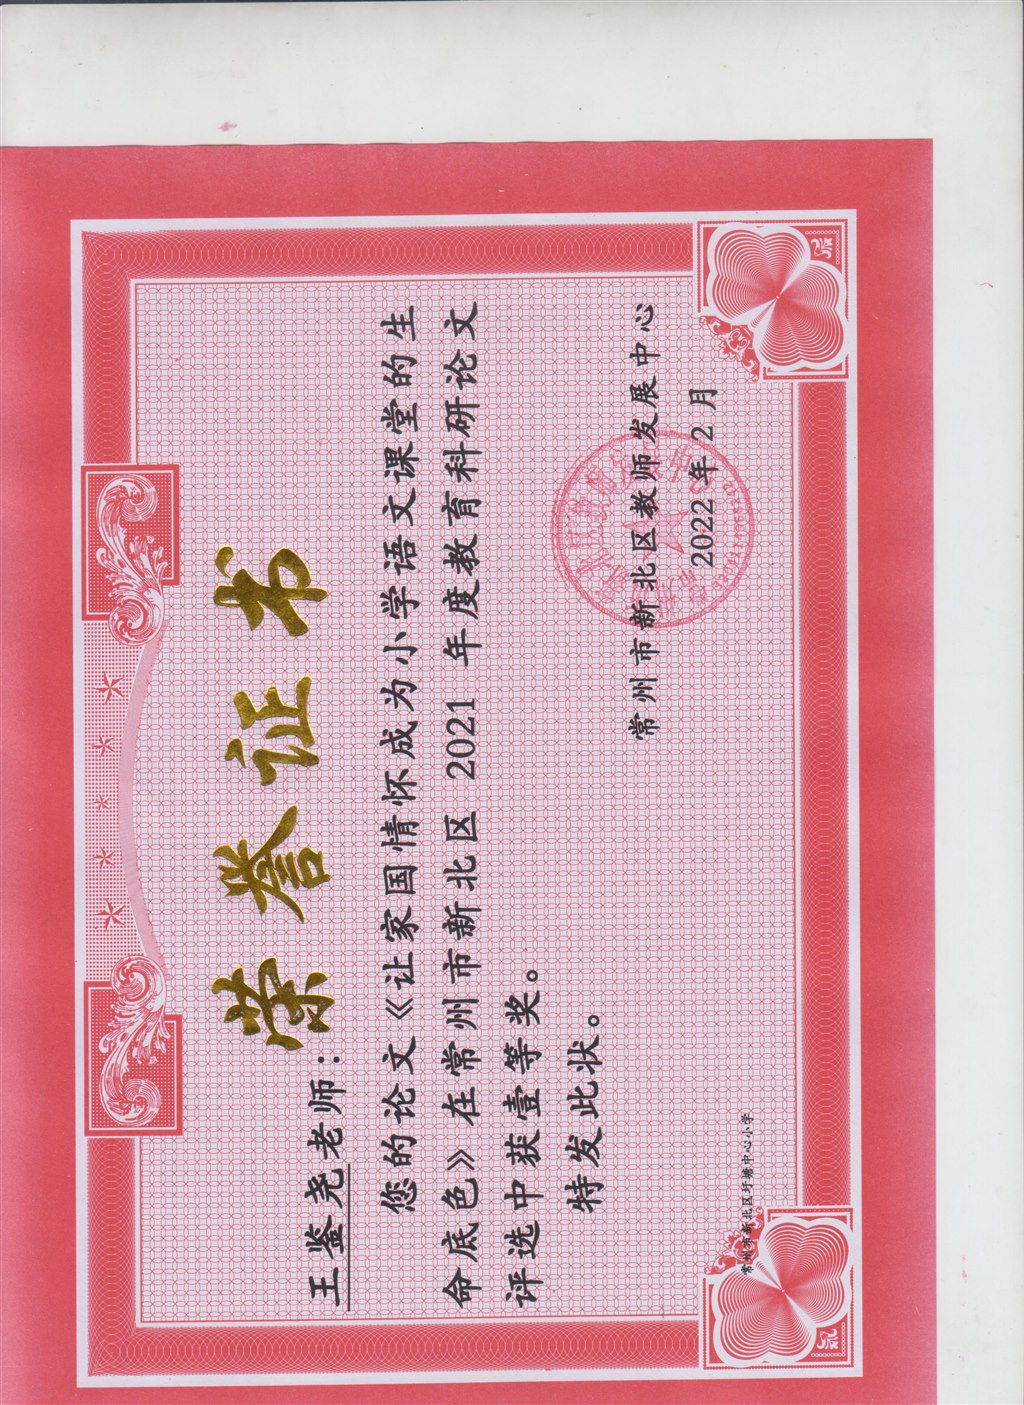 荣誉证书
王鉴尧老师：
您的论文《让家国情怀成为小学语文课堂的生
命底色》在常州市新北区 2021 年度教育科研论文
评选中获壹等奖。
特发此状。
常州市新北区教师发展中心
2022 年 2 月
常州市新北区圩塘中心小学